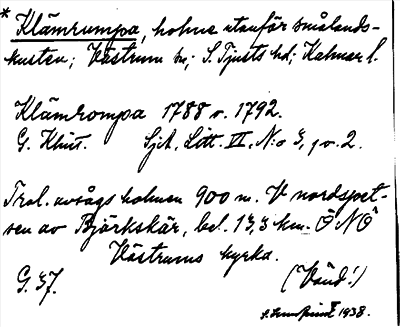 * Klämrumpa, holme utanför smålands-
kusten; Västrum sn; S. Tjusts hd; Kalmar l.
Klämrompa 1788 o. 1792.
G. Klint. Sjk. Litt. VI, N:o 3, 1 o. 2.
Trol. avsågs holmen 900 m. V nordspet-
sen av Björkskär, bel. 13,3 km. ÖNÖ
Västrums kyrka.
G. 37. (Vänd!)
1938.